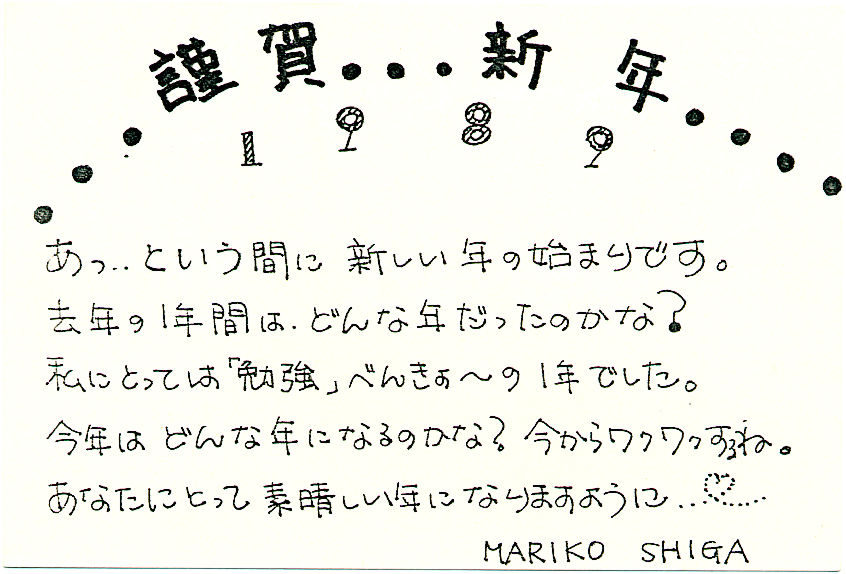 謹賀・・・新年・・・
1989
あっ‥という間に 新しい年の始まりです。
去年の1年間は、どんな年だったのかな?
私にとっては「勉強」べんきょ〜の1年でした。
今年は どんな年になるのかな? 今からワクワクするね。
あなたにとって素晴しい年になりますように‥♡……
MARIKO SHIGA